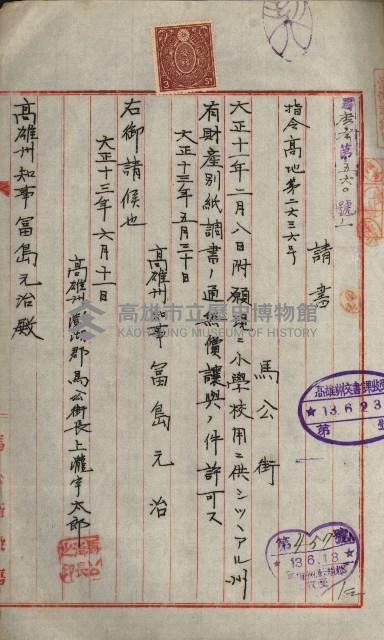 馬庶第五六〇號ノ一
請書
指令高地第二六三六号
馬公街
大正十一年二月八日附願現ニ小學校用ニ供シツヽアル州
有財産別紙調書ノ通無償讓與ノ件許可ス
大正十三年五月三十日
高雄州知事 冨島元治
右御請候也
大正十三年六月十一日
高雄州澎湖郡馬公街長上瀧宇太郎
高雄州知事冨島元治殿
高雄州文書課收受
★13.6.23
第 號
第457號
★13.6.13
高雄市立歷史博物館
KAOHSIUNG MUSEUM OF HISTORY